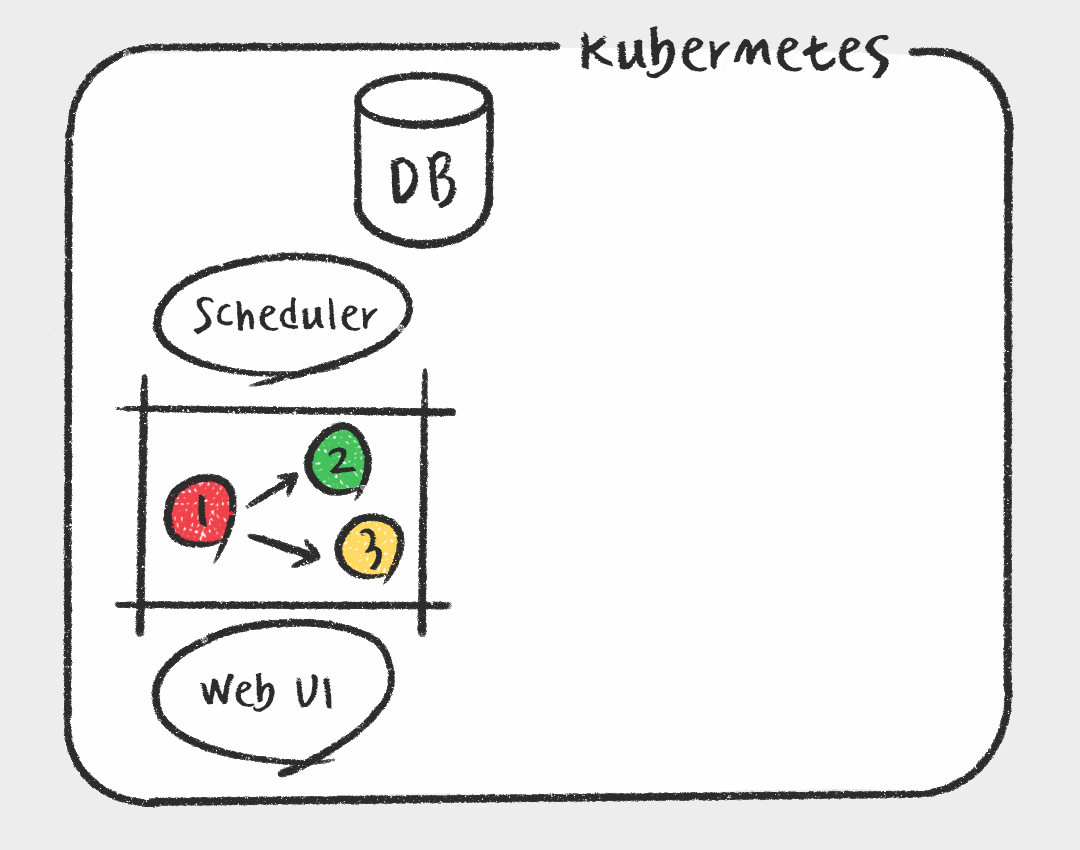 Kubernetes
DB
Scheduler
1
2
3
Web UI